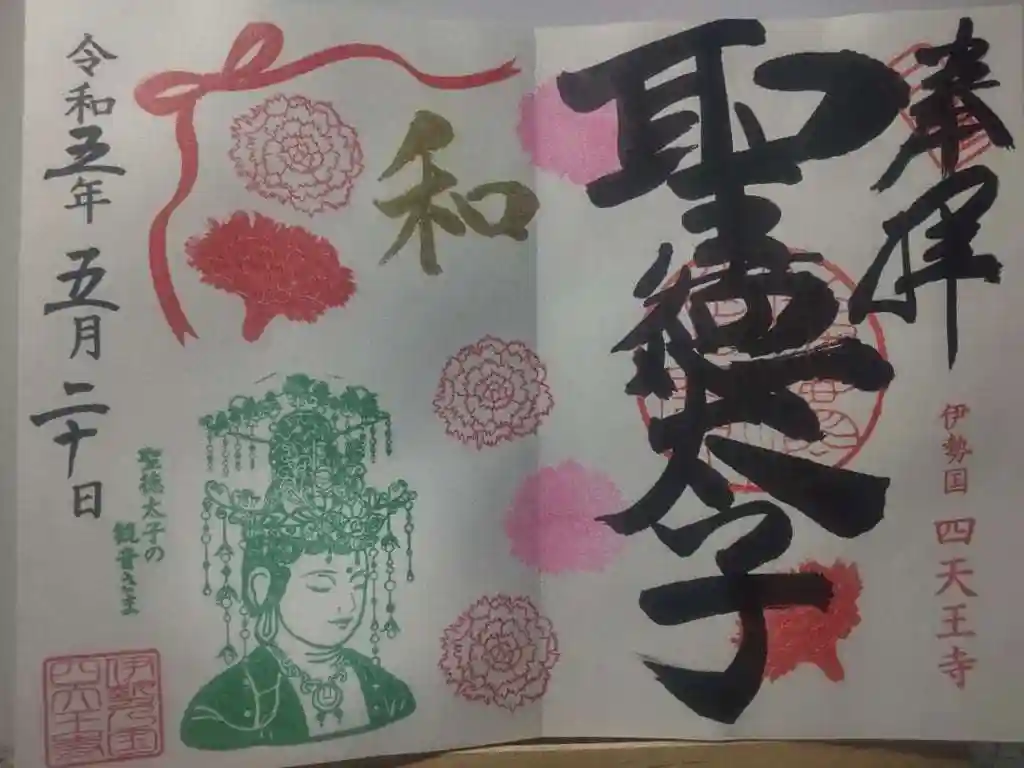 奉拝
聖徳太子
伊勢国 四天王寺
和
聖徳太子の
観音さま
令和五年 五月 二十日